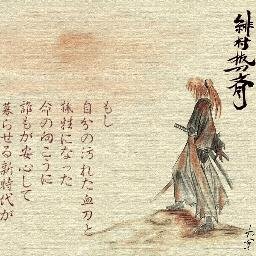 緋村抜刀斎
もし
自分の汚れた血刀と
犠牲になった
命の向こうに
誰もが安心して
暮らせる新時代が